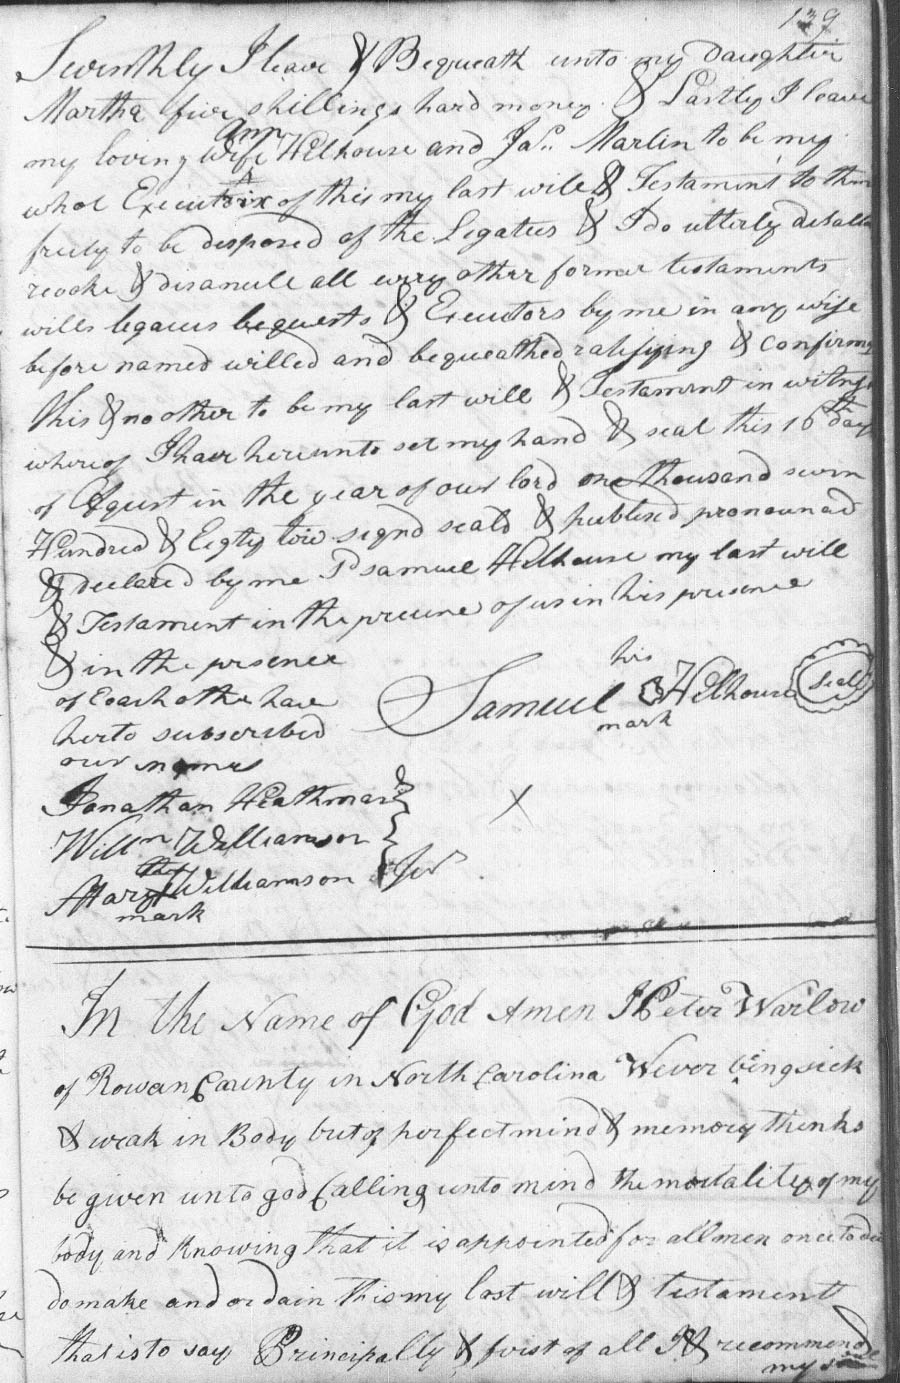 139
Seventhly I leave & Bequeath unto my daughter
Martha five shillings hard money & Lastly I leave
Ann
my loving Wife Helhouse and Jas. Marlin to be my
whol Executrix of this my last will & Testament to them
freely to be desposed of the Legatees & I do utterly disallow
revoke & disanull all every other former testaments
wills legacies bequests & Executors by me in any wise
before named willed and bequeathed ratifying & confirming
this & no other to be my last will & Testament in witness
whereof I have hereunto set my hand & seal this 16th day
of Agust in the year of our lord one thousand seven
Hundred & Eigty two signd seald & publised pronounced
& declared by me Pd samuel Helhouse my last will
& Testament in the precence of us in his presence
& in the presence
of Each other have
herto subscribed
our names
his
Samuel Helhouse seal
mark
Jonathan Heathman
Willm Williamson
Mary Williamson Jur
mark
X
In the Name of God Amen I Peter Warlow
of Rowan County in North Carolina Wever being sick
& weak in Body but of perfect mind & memory thenks
be given unto god Calling unto mind the mortality of my
body and Knowing that it is appointed for all men once to die
do make and ordain this my last will & testament
that is to say Principally & first of all I & recommend
my soul